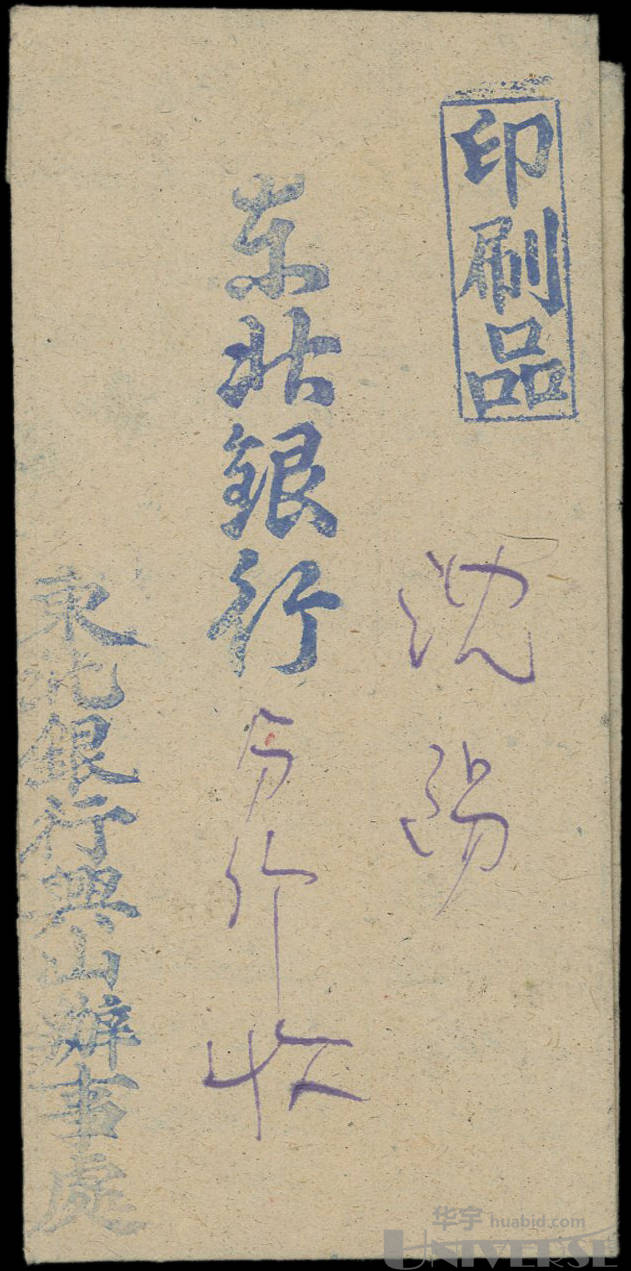 印刷品
沈阳
东北銀行
行收
東北銀行興山辦事處
华宇 huabid.com
UNIVERSE